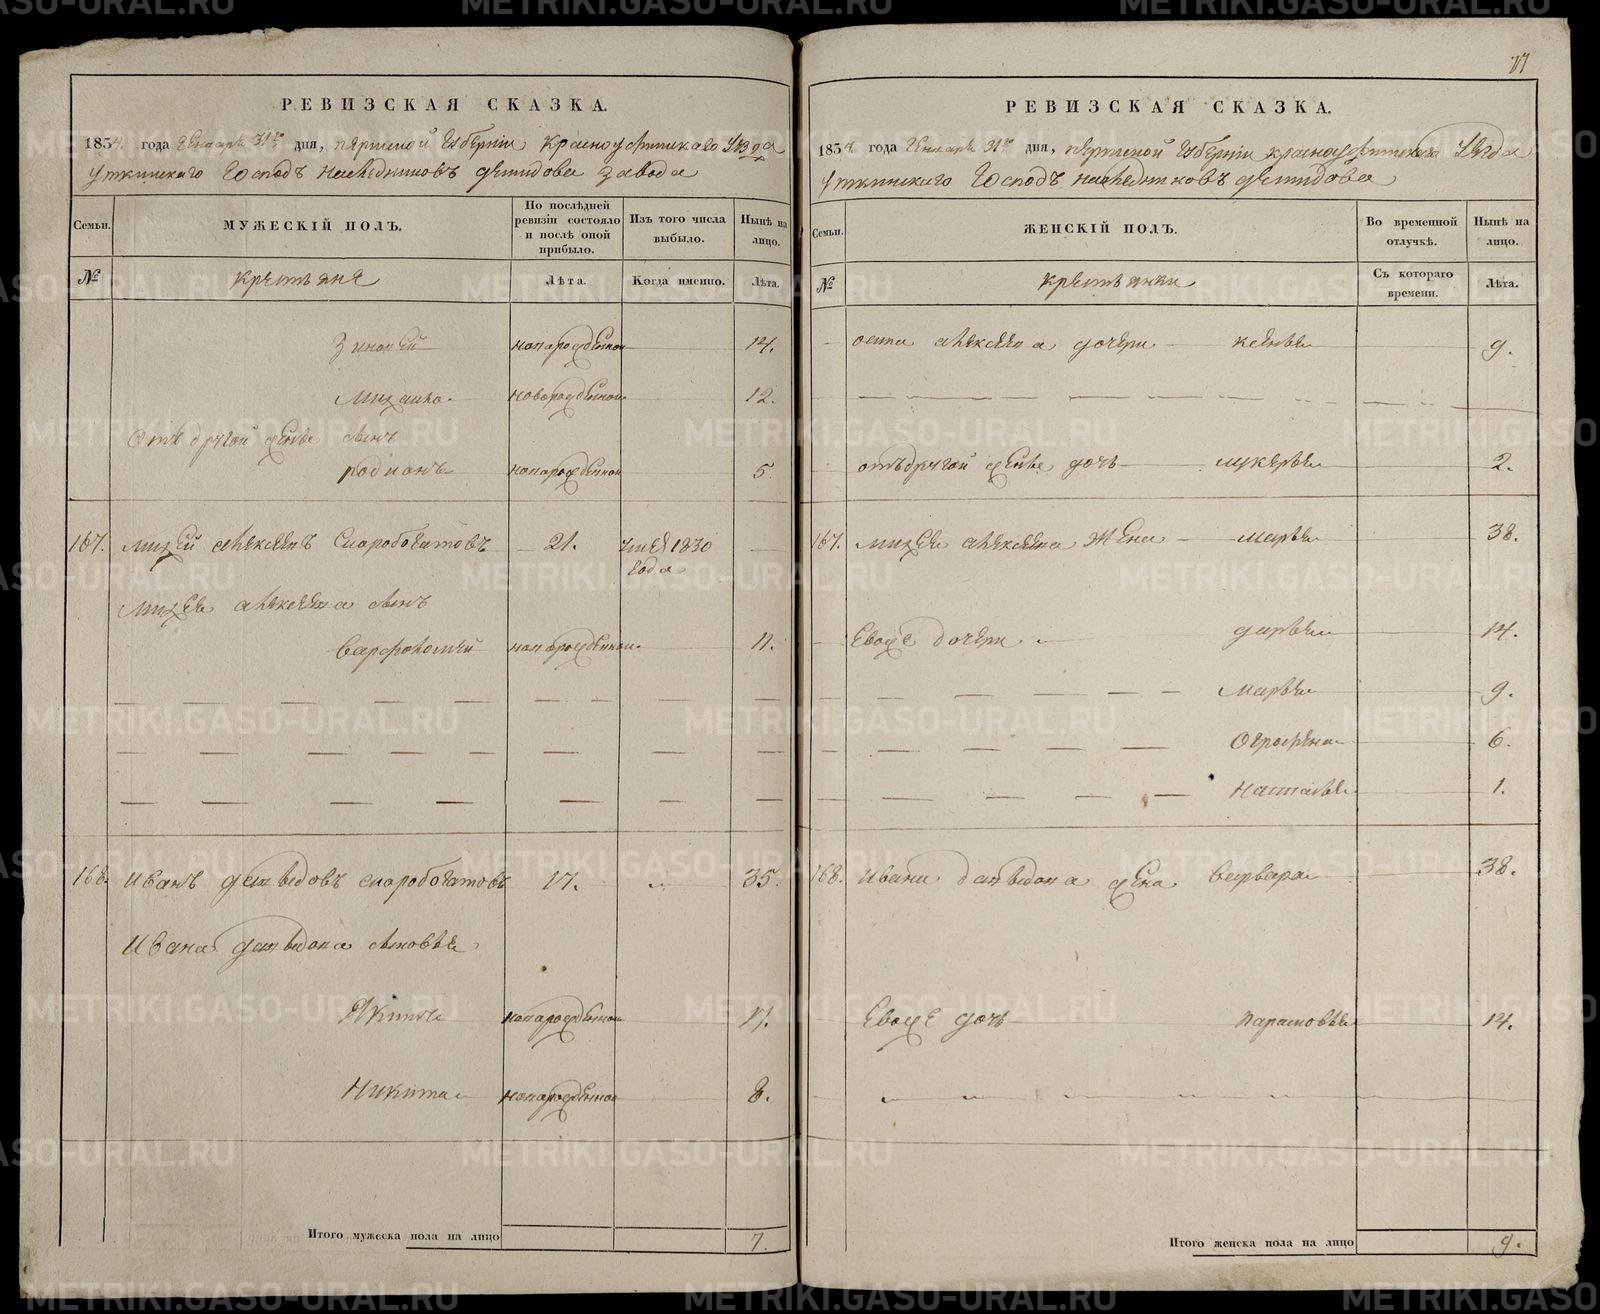 77
РЕВИЗСКАЯ СКАЗКА.
1834 года Генваря 31го дня, пермской губернии Красноуфимскаго уѣзда
Уткинскаго Господъ наследниковъ демидова завода
Семьи.
МУЖЕСКІЙ ПОЛЪ.
По послѣдней ревизіи состояло и послѣ оной прибыло.
Изъ того числа выбыло.
Нынѣ на лицо.
№
крестьяне
Лѣта.
Когда именно.
Лѣта.
Зиновей новорожденной 14.
Михаила новорожденной 12.
Отъ другой жены сынъ
родионъ новорожденной 5.
167. михей алексеевъ скоробогатовъ 21. умеръ 1830
года
михея алексеева сынъ
варфоломей новорожденной 11.
168. Иванъ давыдовъ скоробогатовъ 17. 35.
Ивана давыдова сыновья
Якимъ новорожденной 17.
Никита новорожденной 8.
Итого мужеска пола на лицо 7.
РЕВИЗСКАЯ СКАЗКА.
1834 года Генваря 31го дня, пермской губернии красноуфимскаго уѣзда
Уткинскаго Господъ наследниковъ демидова
Семьи.
ЖЕНСКІЙ ПОЛЪ.
Во временной отлучкѣ.
Нынѣ на лицо.
№
крестьянки
Съ котораго времени.
Лѣта.
осипа алексеева дочери 9.
отъ другой жены дочь лукерья 2.
167. михея алексеева жена марья 38.
Евоже дочери дарья 14.
марья 9.
Ографена 6.
Настасья 1.
168. Ивана давыдова жена варвара 38.
Евоже дочь парасковья 14.
Итого женска пола на лицо 9.
METRIKI.GASO-URAL.RU